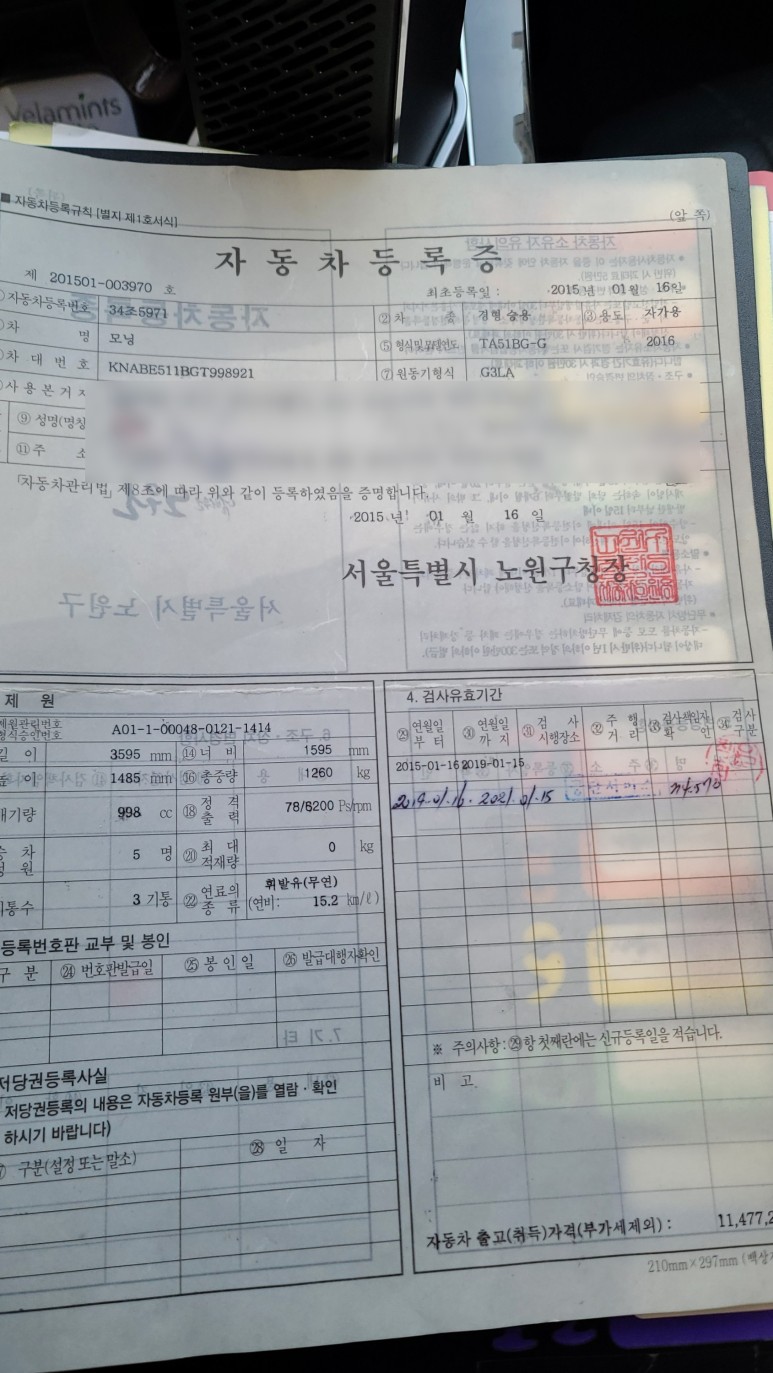 Velamints
■ 자동차등록규칙 [별지 제1호서식]
(앞 쪽)
자 동 차 등 록 증
제 201501-003970 호
최초등록일 : 2015 년 01월 16일
자동차등록번호 34조5971 ② 차 종 경형 승용 ③ 용도 자가용
차 명 모닝 ⑤ 형식 및 모델연도 TA51BG-G 2016
차 대 번 호 KNABE511BGT998921 ⑦ 원동기형식 G3LA
사 용 본 거 지
⑨ 성명(명칭
⑪ 주 소
「자동차관리법」 제8조에 따라 위와 같이 등록하였음을 증명합니다.
2015 년 01 월 16 일
서울특별시 노원구청장
제 원
제원관리번호
형식승인번호 A01-1-00048-0121-1414
길 이 3595 mm ⑭ 너 비 1595 mm
1485 mm ⑯ 총중량 1260 kg
배기량 998 cc ⑱ 정 격 출 력 78/6200 Ps/rpm
승 차 정 원 5 명 ⑳ 최 대 적재량 0 kg
기통수 3 기통 ㉒ 연료의 종 류 휘발유(무연)
(연비: 15.2 km/ℓ)
등록번호판 교부 및 봉인
구 분 ㉔ 번호판발급일 ㉕ 봉 인 일 ㉖ 발급대행자확인
저당권등록사실
저당권등록의 내용은 자동차등록 원부(을)를 열람 · 확인
하시기 바랍니다)
구분(설정 또는 말소) ㉘ 일 자
4. 검사유효기간
㉙ 연월일 부 터 ㉚ 연월일 까 지 ㉛ 검 사 시행장소 ㉜ 주 행 거 리 ㉝ 검사책임자 확 인 ㉞ 검사 구분
2015-01-16 2019-01-15
2019.01.16. 2021.01.15
※ 주의사항 : ㉙항 첫째란에는 신규등록일을 적습니다.
비 고
자동차 출고(취득)가격(부가세제외) : 11,477,2
210mm×297mm